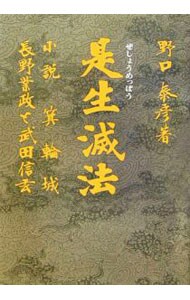 野口泰彦著
是生滅法
ぜしょうめっぽう
小説 箕輪城
長野業政と武田信玄